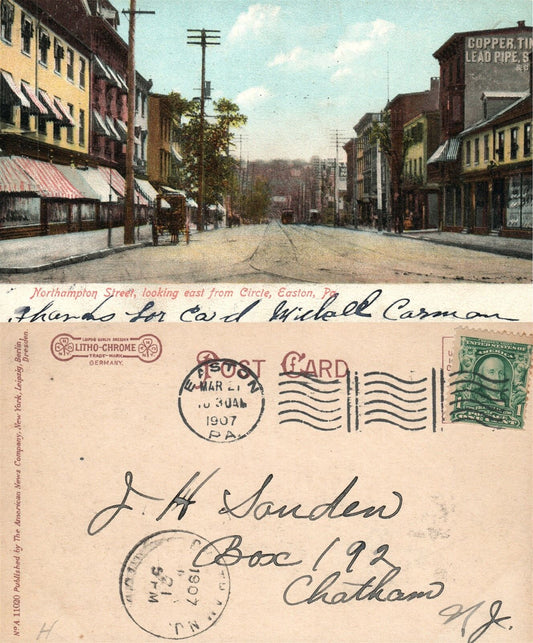 COPPER, TIN
LEAD PIPE, S
Northampton Street, looking east from Circle, Easton, Pa.
Thanks for card Michall Carman
LEIPZIG BERLIN DRESDEN
LITHO-CHROME
TRADE-MARK
GERMANY.
POST CARD
EASTON
MAR 21
10 30 AM
1907
PA.
UNITED STATES OF AMERICA
1
J H Sanden
Box 192
Chatham
N J.
21
5 PM
1907
N.J.
No A 11020 Published by The American News Company, New York, Leipzig, Berlin, Dresden.
H